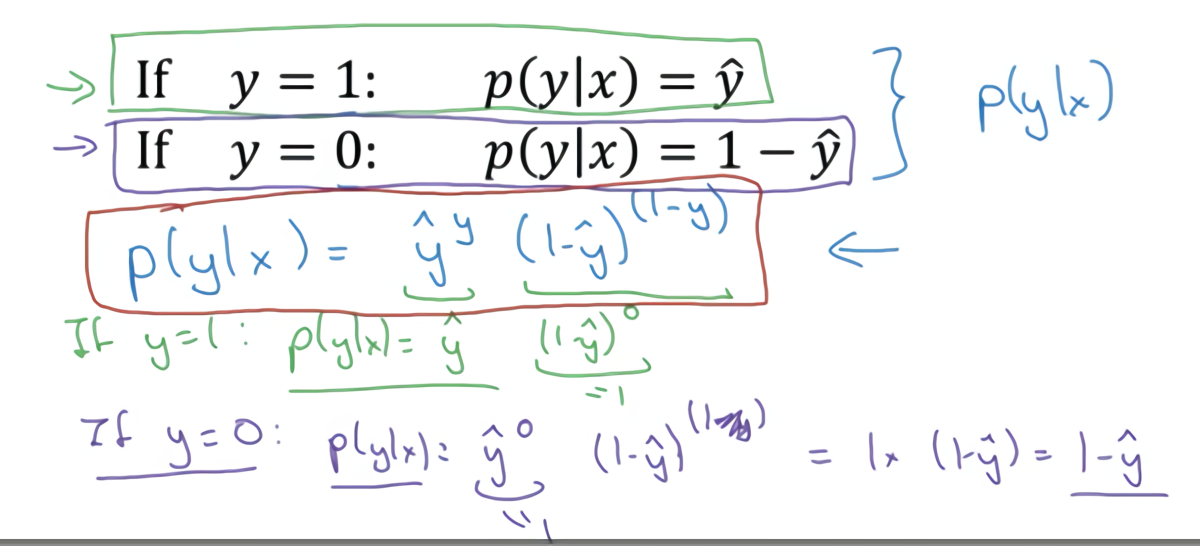 If y = 1: p(y|x) = ŷ
If y = 0: p(y|x) = 1 − ŷ
p(y|x)
p(y|x) = ŷ^y (1-ŷ)^(1-y)
If y=1: p(y|x) = ŷ (1-ŷ)^0
=1
If y=0: p(y|x) = ŷ^0 (1-ŷ)^(1-y) = 1x (1-ŷ) = 1-ŷ
=1